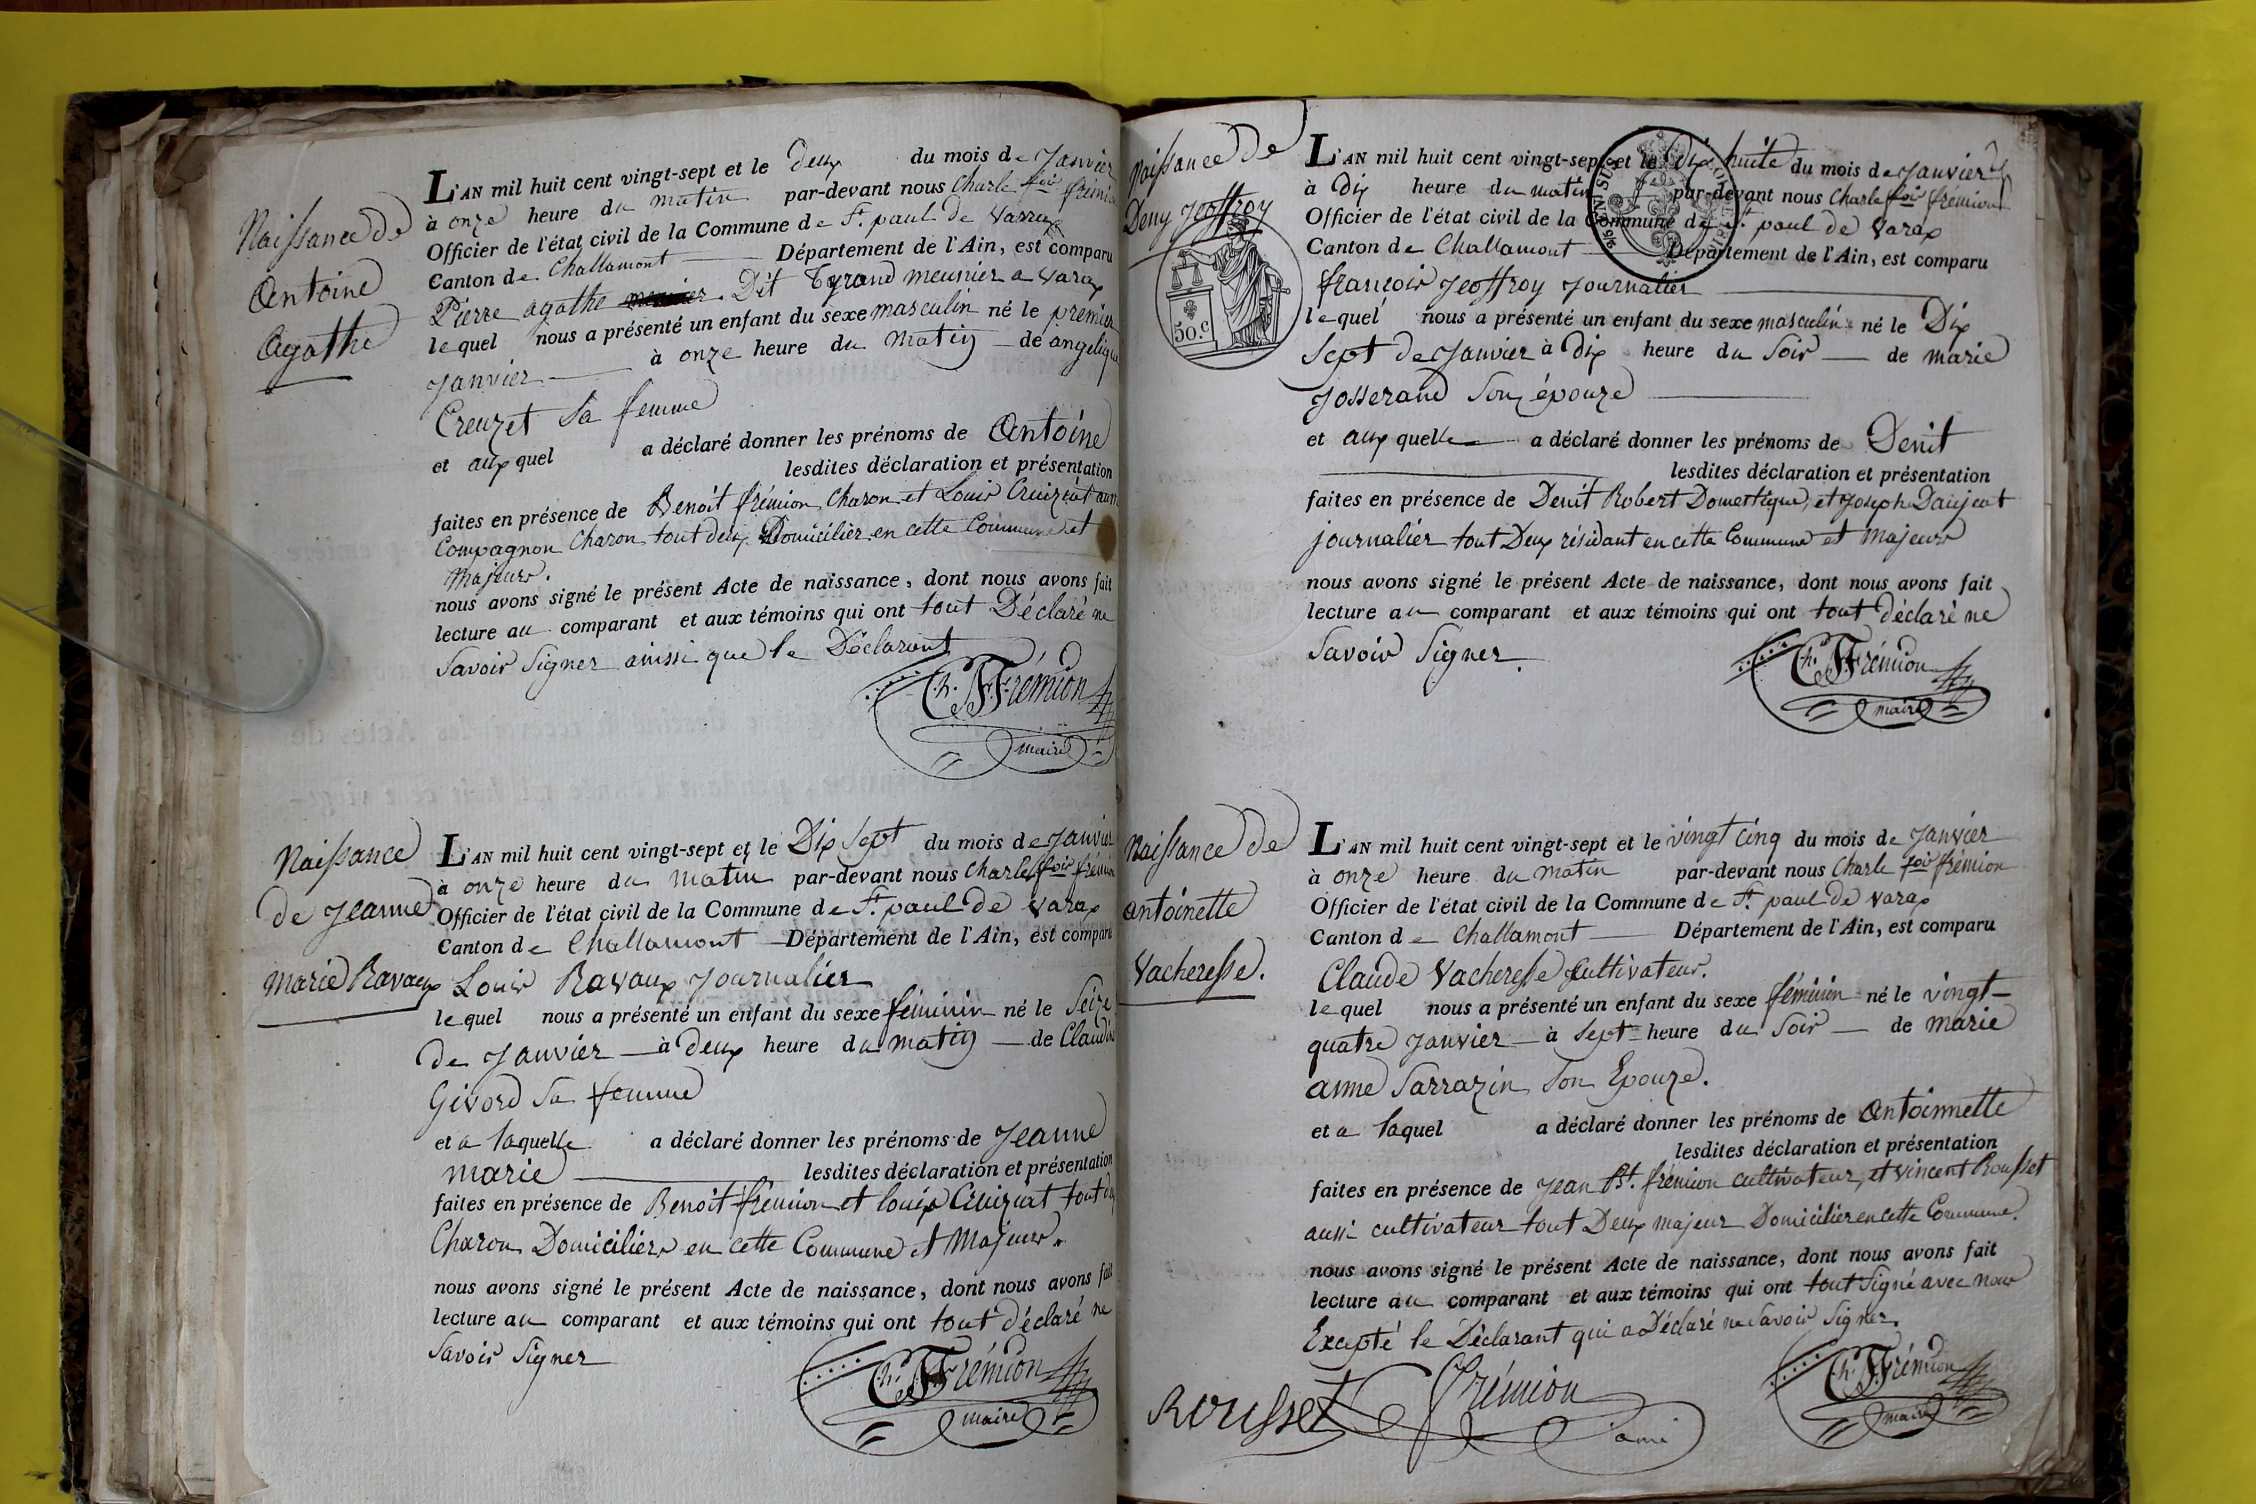 Naissance de
Antoine
Agathe
L'AN mil huit cent vingt-sept et le deux du mois de Janvier
à onze heure du matin par-devant nous Charle fois frémion
Officier de l'état civil de la Commune de St. paul de Varax
Canton de Challamont Département de l'Ain, est comparu
Pierre agathe Dit Tyrand meunier a Varax
lequel nous a présenté un enfant du sexe masculin né le premier
Janvier à onze heure du Matin de angelique
Creuzet Sa femme
et aux quel a déclaré donner les prénoms de Antoine
lesdites déclaration et présentation
faites en présence de Benoit frémion Charon et Louis Cruiziat aussi
Compagnon Charon tout deux Domicilier en cette Commune et
Majeurs.
nous avons signé le présent Acte de naissance, dont nous avons fait
lecture au comparant et aux témoins qui ont tout Déclaré ne
Savoir Signer ainssi que le Déclarant
Ch. Frémion
maire
Naissance
de Jeanne
Marie Ravaux
L'AN mil huit cent vingt-sept et le Dix Sept du mois de Janvier
à onze heure du matin par-devant nous Charle fois frémion
Officier de l'état civil de la Commune de St. paul De Varax
Canton de Challamont Département de l'Ain, est comparu
Louis Ravaux Journalier
lequel nous a présenté un enfant du sexe féminin né le Seize
de Janvier à deux heure du matin de Claudine
Givord Sa femme
et a laquelle a déclaré donner les prénoms de Jeanne
marie lesdites déclaration et présentation
faites en présence de Benoit frémion et louis Cruiziat tout deux
Charon Domiciliers en cette Commune et Majeurs.
nous avons signé le présent Acte de naissance, dont nous avons fait
lecture au comparant et aux témoins qui ont tout déclaré ne
Savoir Signer
Ch. Frémion
maire
Naissance de
Deny Jeoffroy
50.c
L'AN mil huit cent vingt-sept et le Dix huite du mois de Janvier
à Dix heure du matin par-devant nous Charle fois frémion
Officier de l'état civil de la Commune de St. paul de Varax
Canton de Challamont Département de l'Ain, est comparu
françois Jeoffroy Journalier
lequel nous a présenté un enfant du sexe masculin né le Dix
Sept de Janvier à Dix heure du Soir de marie
Josserand Son épouze
et aux quelle a déclaré donner les prénoms de Denit
lesdites déclaration et présentation
faites en présence de Denit Robert Domestique, et Joseph Daujeat
journalier tout Deux résidant en cette Commune et Majeurs
nous avons signé le présent Acte de naissance, dont nous avons fait
lecture au comparant et aux témoins qui ont tout déclaré ne
Savoir Signer.
Ch. Frémion
maire
Naissance de
antoinette
Vacheresse.
L'AN mil huit cent vingt-sept et le vingt cinq du mois de Janvier
à onze heure du matin par-devant nous Charle fois frémion
Officier de l'état civil de la Commune de St. paul De Varax
Canton de Challamont Département de l'Ain, est comparu
Claude Vacheresse Cultivateur.
lequel nous a présenté un enfant du sexe féminin né le vingt-
quatre Janvier à Sept heure du Soir de marie
anne Sarrazin Son Epouze.
et a laquel a déclaré donner les prénoms de Antoinnette
lesdites déclaration et présentation
faites en présence de Jean Bt. frémion cultivateur, et vincent Rousset
aussi cultivateur tout Deux majeur Domicilier en cette Commune.
nous avons signé le présent Acte de naissance, dont nous avons fait
lecture au comparant et aux témoins qui ont tout Signé avec nous
Excepté le Déclarant qui a Déclaré ne Savoir Signer.
Rousset Frémion
Ch. Frémion
maire